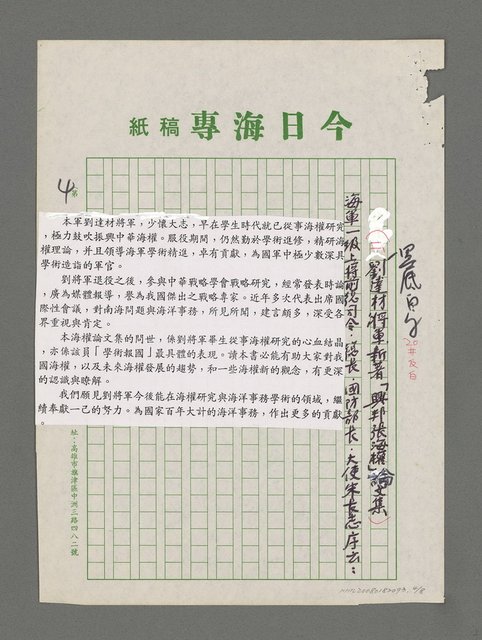 今日海專稿紙
第
4
黑底白字
20#反白
劉達材將軍新著「興邦張海權」論文集
海軍一級上將前總司令、總長、國防部長、大使宋長志序云：
本軍劉達材將軍，少懷大志，早在學生時代就已從事海權研究
，極力鼓吹振興中華海權。服役期間，仍然勤於學術進修，精研海
權理論，并且領導海軍學術精進，卓有貢獻，為國軍中極少數深具
學術造詣的軍官。
劉將軍退役之後，參與中華戰略學會戰略研究，經常發表時論
，廣為媒體報導，譽為我國傑出之戰略專家。近年多次代表出席國
際性會議，對南海問題與海洋事務，所見所聞，建言頗多，深受各
界重視與肯定。
本海權論文集的問世，係劉將軍畢生從事海權研究的心血結晶
，亦係該員「學術報國」最具體的表現。讀本書必能有助大家對我
國海權，以及未來海權發展的趨勢，和一些海權新的觀念，有更深
的認識與瞭解。
我們願見劉將軍今後能在海權研究與海洋事務學術的領域，繼
續奉獻一己的努力。為國家百年大計的海洋事務，作出更多的貢獻
。
址：高雄市旗津區中洲三路四八二號